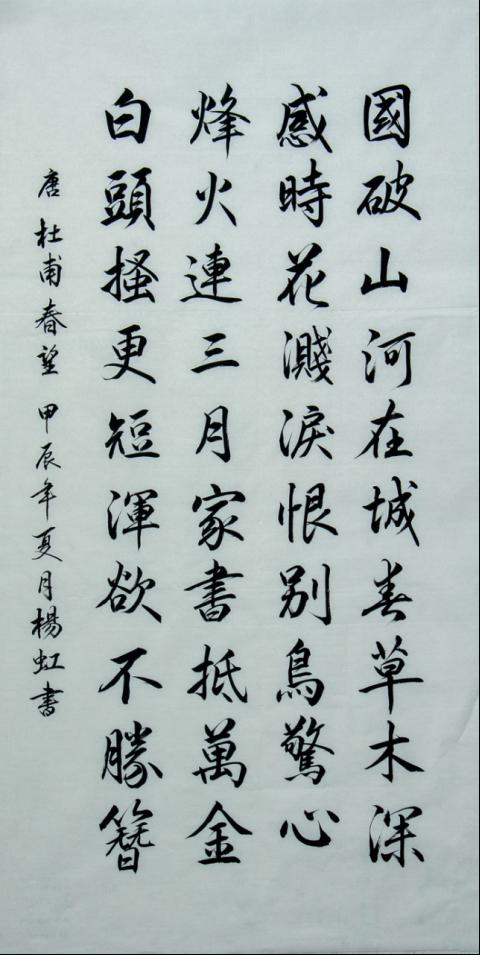 國破山河在城春草木深
感時花濺淚恨别鳥驚心
烽火連三月家書抵萬金
白頭搔更短渾欲不勝簪
唐杜甫春望甲辰年夏月楊虹書